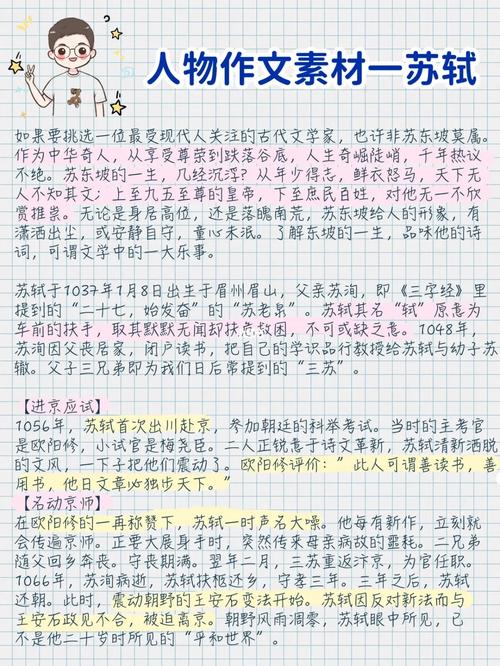 人物作文素材—苏轼
如果要挑选一位最受现代人关注的古代文学家，也许非苏东坡莫属。
作为中华奇人，从享受尊荣到跌落谷底，人生奇崛陡峭，千年热议
不绝。苏东坡的一生，几经沉浮？从年少得志，鲜衣怒马，天下无
人不知其文；上至九五至尊的皇帝，下至庶民百姓，对他无一不欣
赏推崇。无论是身居高位，还是落魄南荒，苏东坡给人的形象，有
潇洒出尘，或安静自守，童心未泯。了解东坡的一生，品味他的诗
词，可谓文学中的一大乐事。
苏轼于1037年1月8日出生于眉州眉山，父亲苏洵，即《三字经》里
提到的“二十七，始发奋”的“苏老泉”。苏轼其名“轼”原意为
车前的扶手，取其默默无闻却扶危救困，不可或缺之意。1048年，
苏洵因父丧居家，闭户读书，把自己的学识品行教授给苏轼与幼子苏
辙。父子三兄弟即为我们日后常提到的“三苏”。
【进京应试】
1056年，苏轼首次出川赴京，参加朝廷的科举考试。当时的主考官
是欧阳修，小试官是梅尧臣。二人正锐意于诗文革新，苏轼清新洒脱
的文风，一下子把他们震动了。欧阳修评价：”此人可谓善读书，善
用书，他日文章必独步天下。”
【名动京师】
在欧阳修的一再称赞下，苏轼一时声名大噪。他每有新作，立刻就
会传遍京师。正要大展身手时，突然传来母亲病故的噩耗。二兄弟
随父回乡奔丧。守丧期满。翌年二月，三苏重返汴京，为官任职。
1066年，苏洵病逝，苏轼扶柩还乡，守孝三年。三年之后，苏轼
还朝。此时，震动朝野的王安石变法开始。苏轼因反对新法而与
王安石政见不合，被迫离京。朝野风雨凋零，苏轼眼中所见，已
不是他二十岁时所见的“平和世界”。